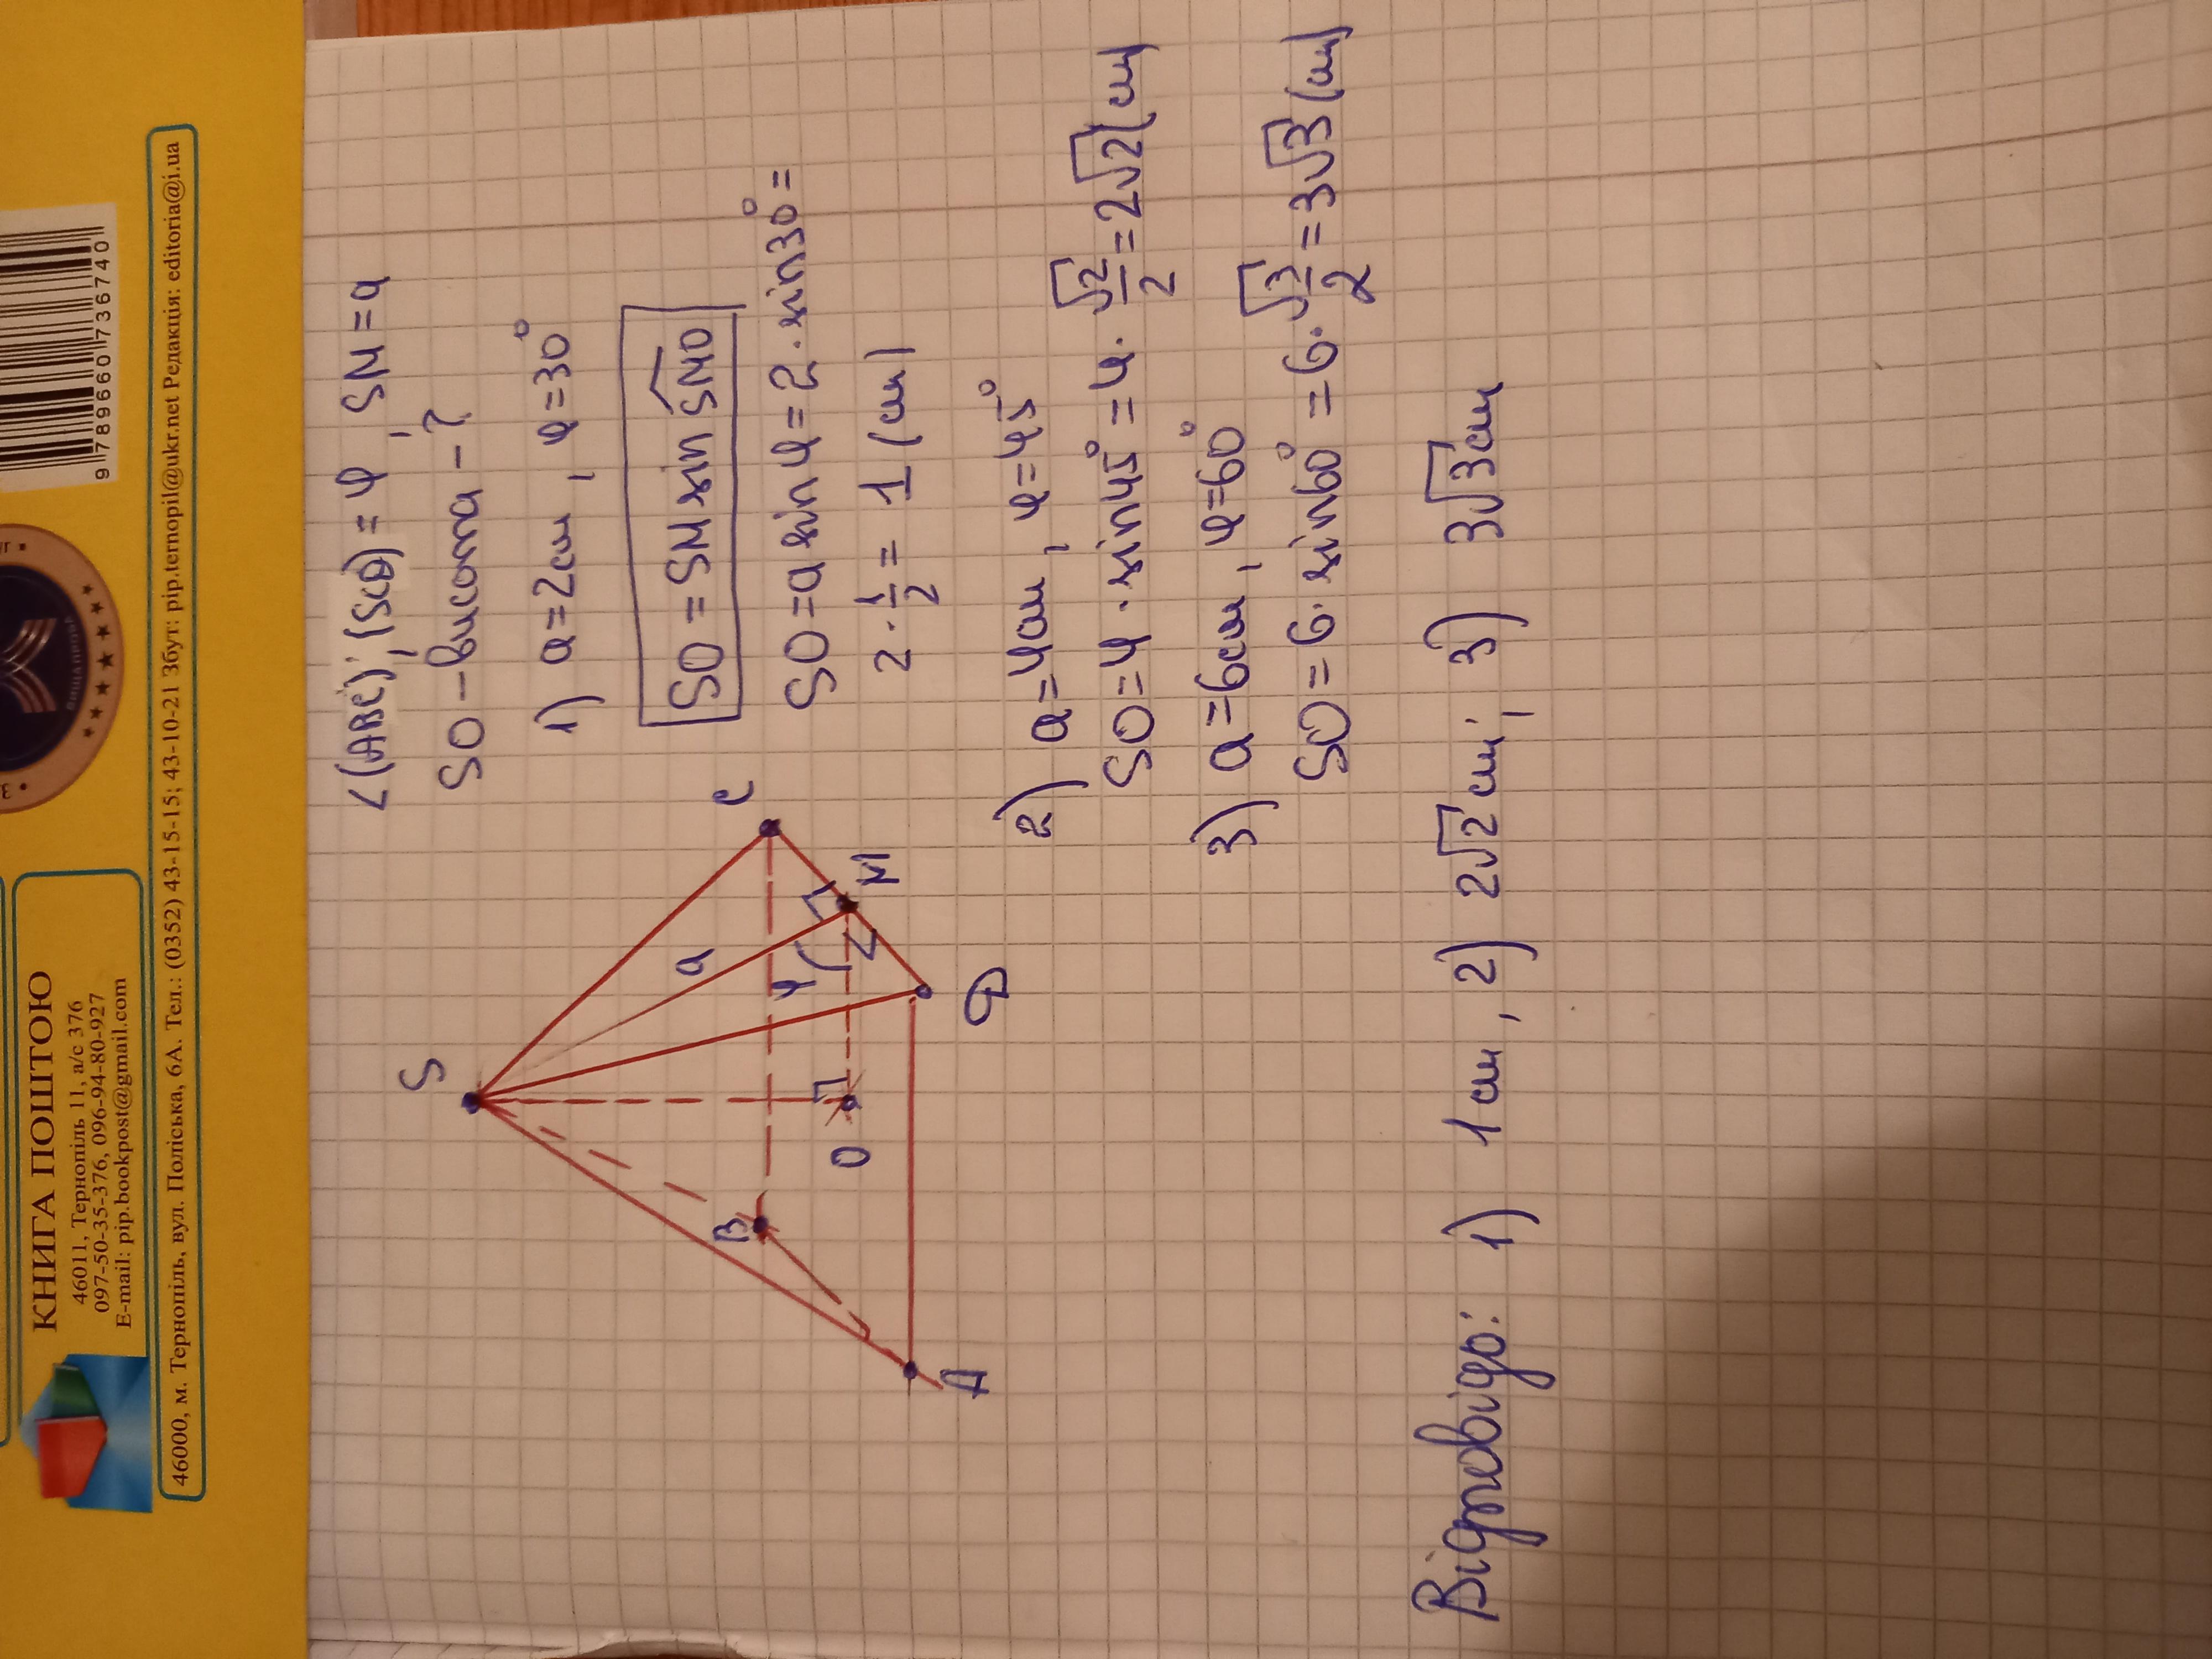 КНИГА ПОШТОЮ
46011, Тернопіль 11, а/с 376
097-50-35-376, 096-94-80-927
E-mail: pip.bookpost@gmail.com
9 789660 736740
46000, м. Тернопіль, вул. Поліська, 6А. Тел.: (0352) 43-15-15; 43-10-21 Збут: pip.ternopil@ukr.net Редакція: editoria@i.ua
∠(ABC);(SCD) = φ, SM = a
SO – висота – ?
1) a=2см, φ=30°
SO = SM sin SMO
SO = a sin φ = 2 · sin30° =
2 · 1/2 = 1 (см)
S
a
φ
B
C
O
M
A
D
2) a=4см, φ=45°
SO=4 · sin45° = 4 · √2/2 = 2√2 (см)
3) a=6см, φ=60°
SO=6 · sin60° = 6 · √3/2 = 3√3 (см)
Відповідь: 1) 1см, 2) 2√2 см; 3) 3√3см